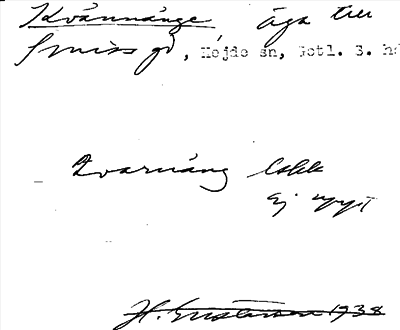 Kvännänge äga till
Smiss gd, Hejde sn, Gotl. 3. hd
Kvarnäng
ej nytt
H. Gustavson 1938